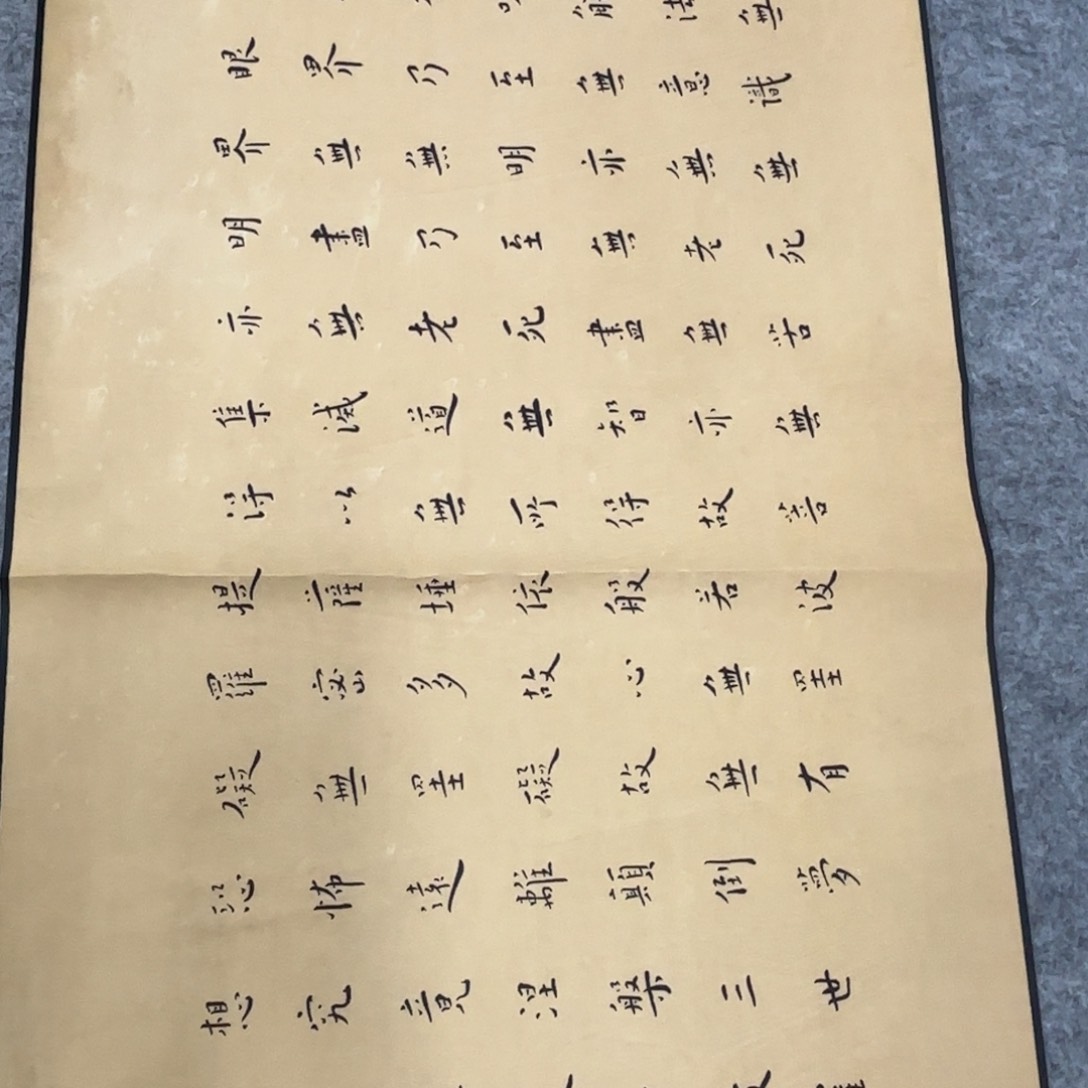 法無
眼界乃至無意識
界無無明亦無無
明盡乃至無老死
亦無老死盡無苦
集滅道無智亦無
得以無所得故菩
提薩埵依般若波
羅密多故心無罣
礙無罣礙故無有
恐怖遠離顛倒夢
想究竟涅槃三世